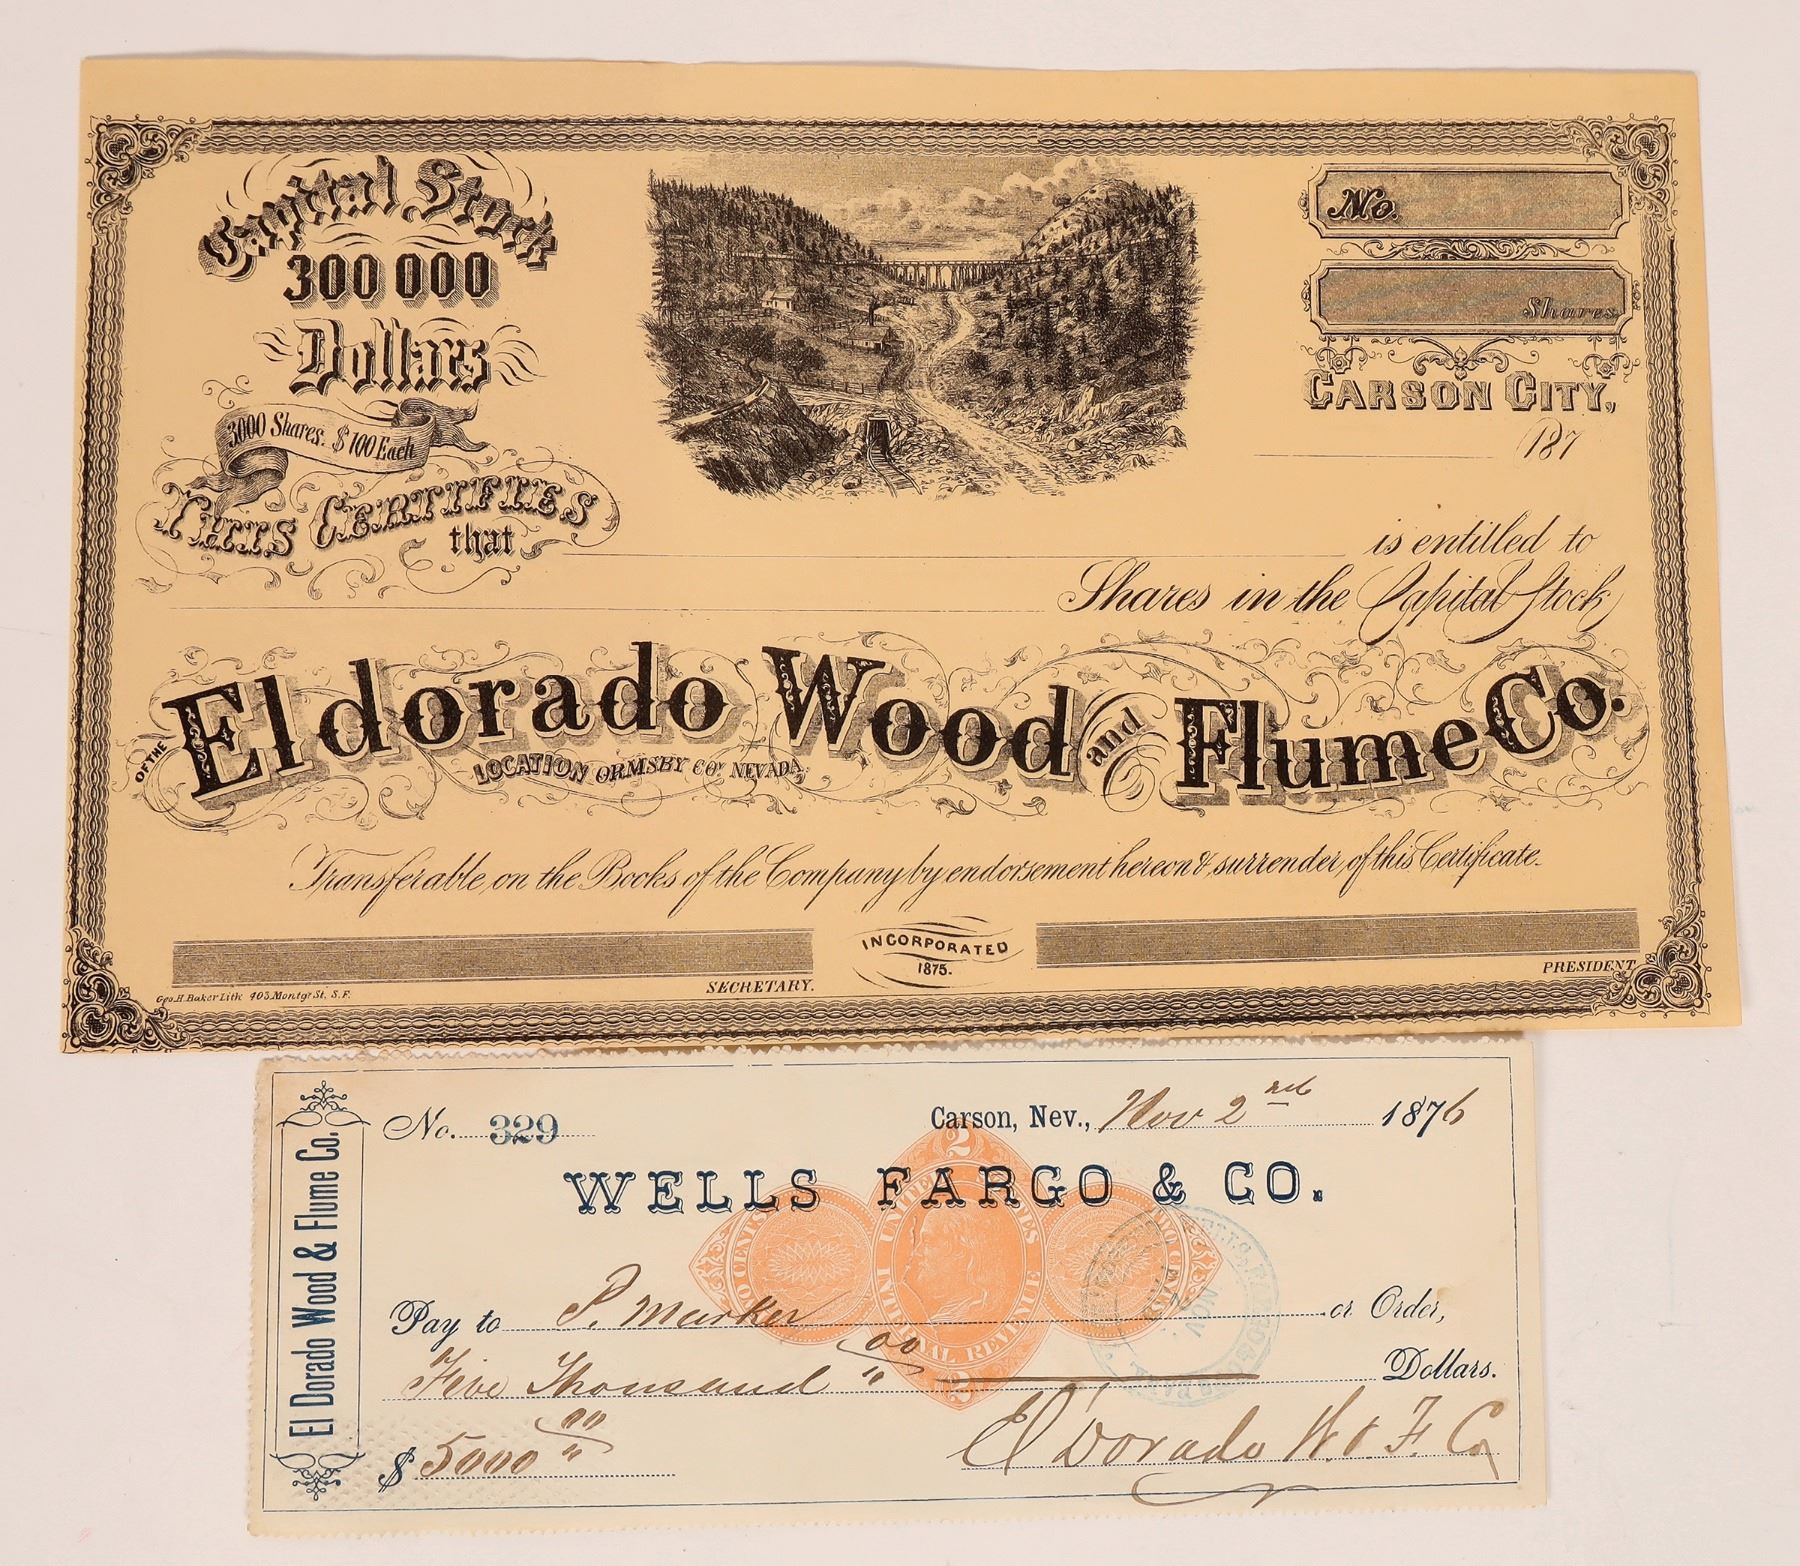 Capital Stock
300 000
Dollars
3000 Shares. $100 Each
THIS CERTIFIES
that
No.
Shares
CARSON CITY,
187
is entitled to
Shares in the Capital Stock
OF THE
El dorado Wood and Flume Co.
LOCATION ORMSBY COy NEVADA
Transferable, on the Books of the Company by endorsement hereon & surrender, of this Certificate.
INCORPORATED
1875.
SECRETARY.
PRESIDENT
Geo. H. Baker Lith 405 Montgy St. S.F.
El Dorado Wood & Flume Co.
No. 329
Carson, Nev., Nov 2nd 1876
WELLS FARGO & CO.
2
UNITED STATES
INTERNAL REVENUE
TWO CENTS
TWO CENTS
2
NOV
Pay to P. Marker or Order,
Five Thousand 00/" Dollars.
$ 5000 00/"
El Dorado W & F. Co